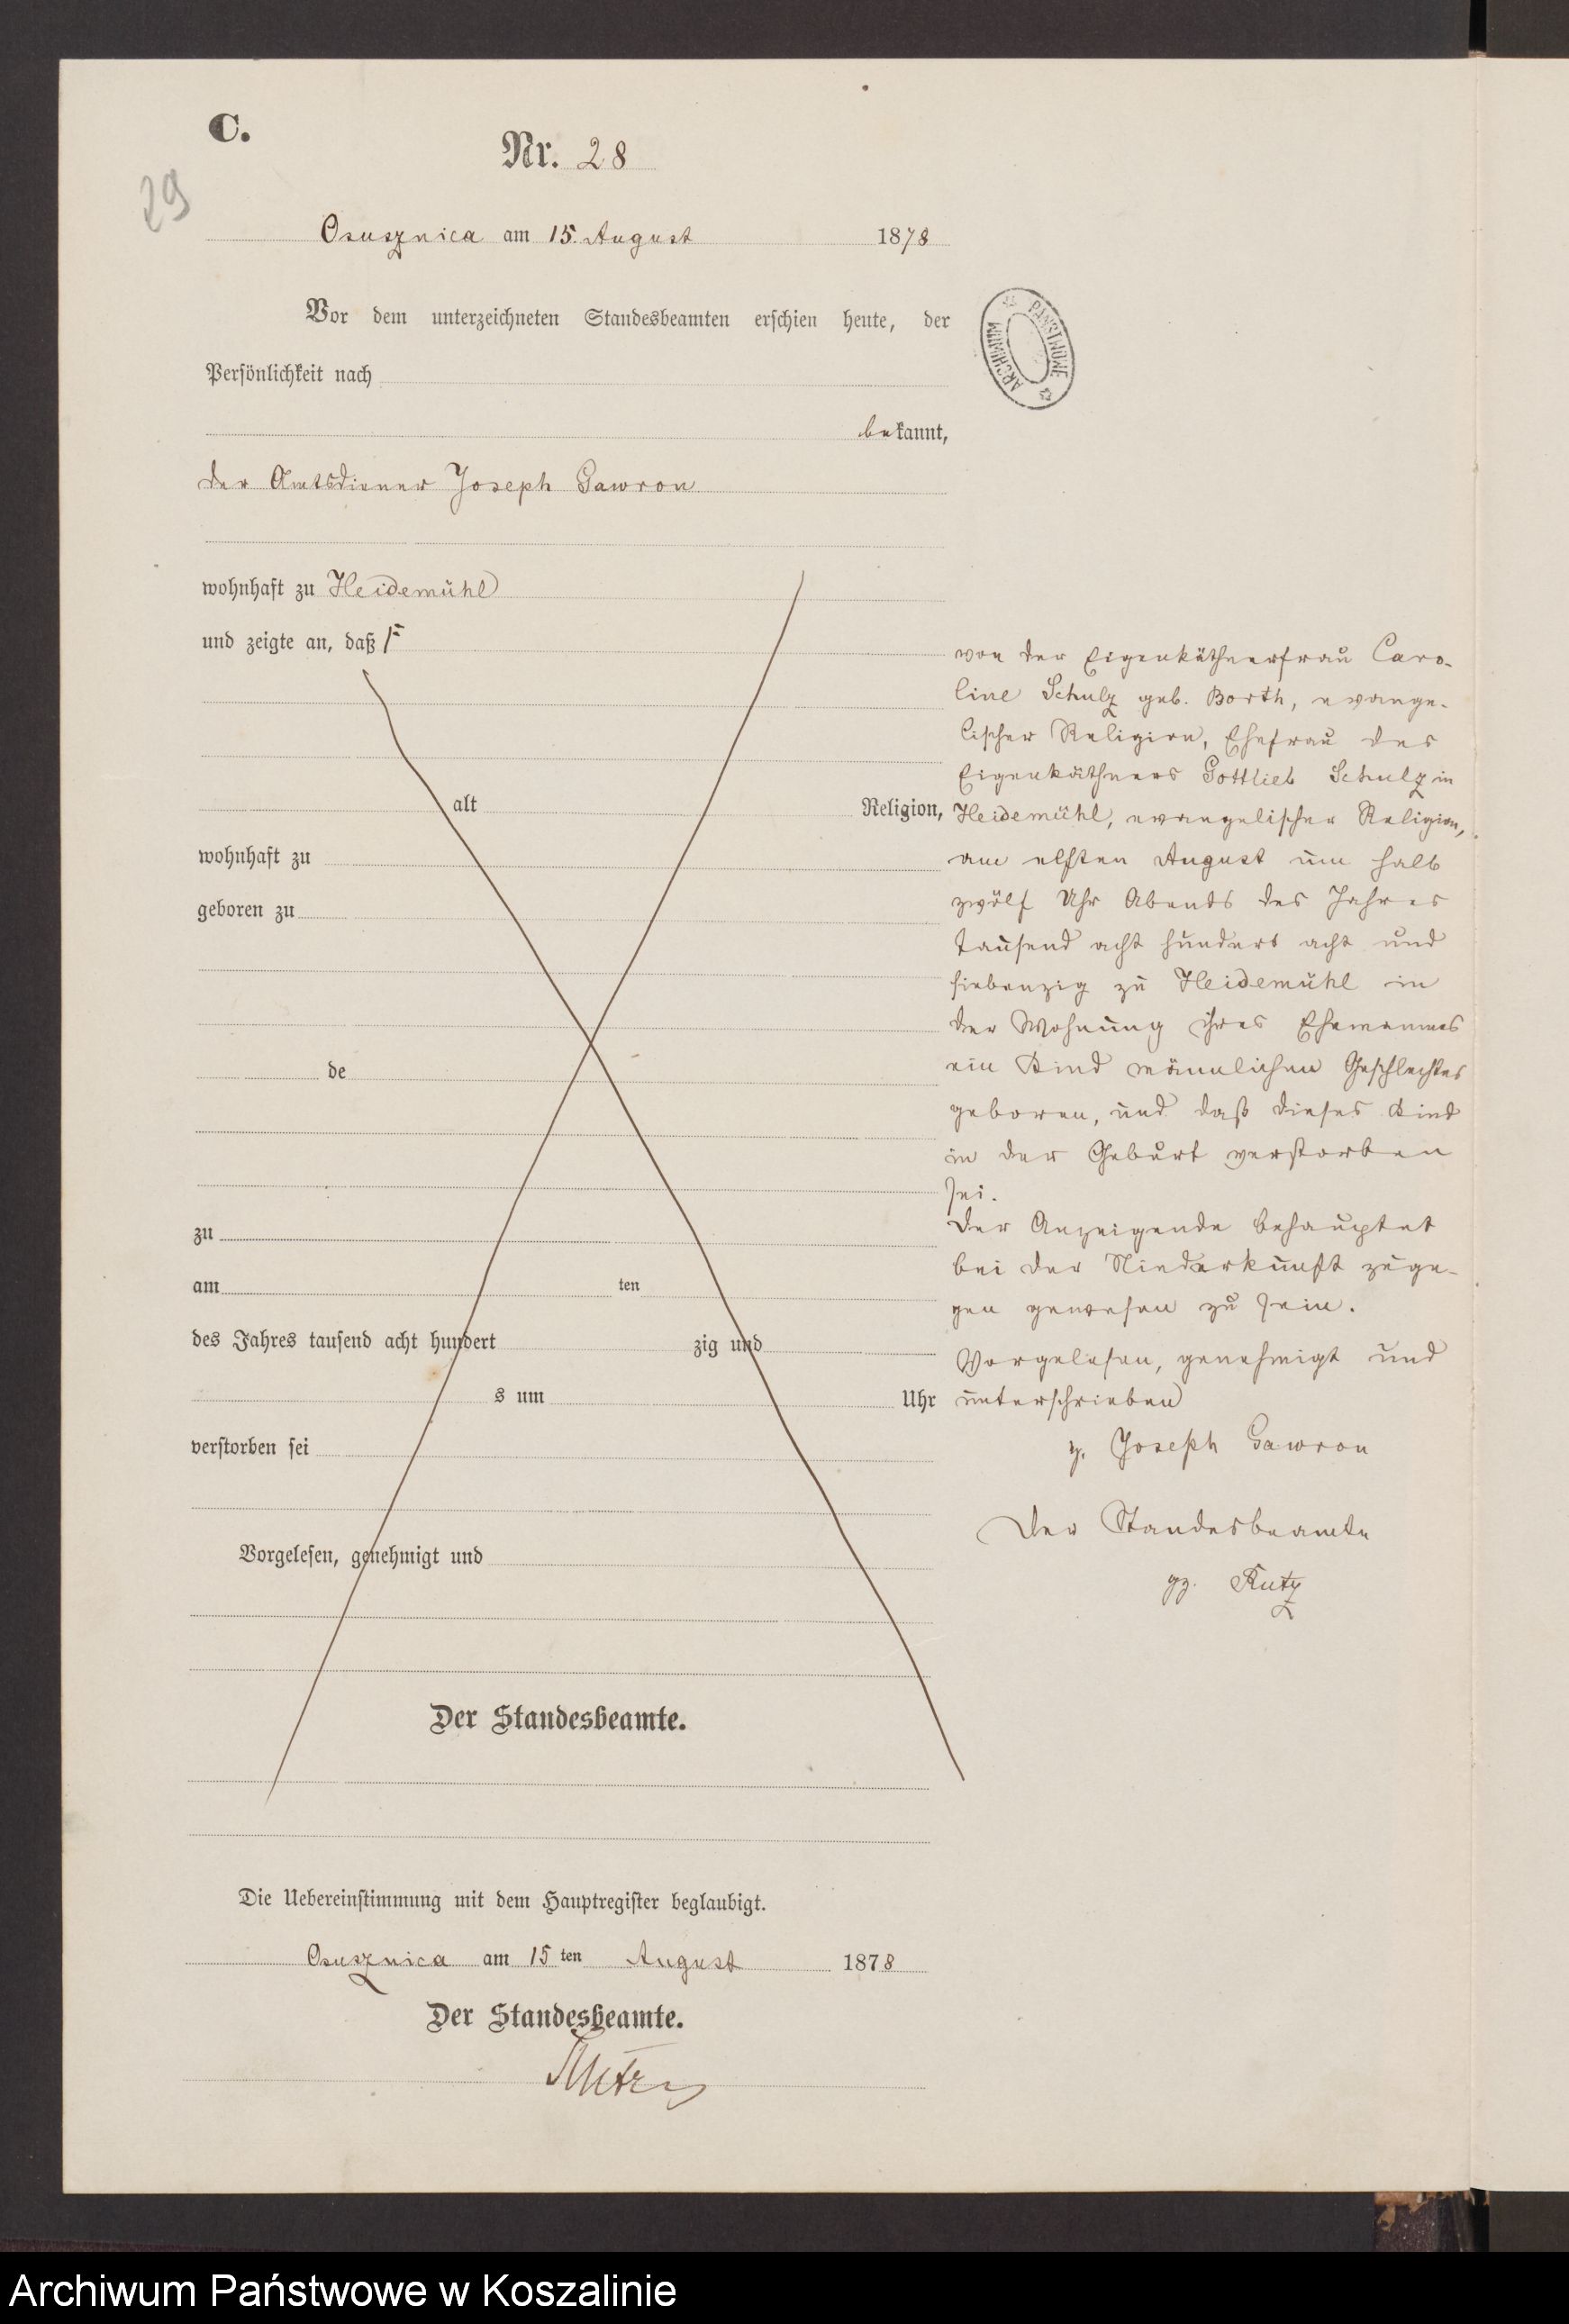 C.
Nr. 28
29
Osusznica am 15. August 1878
Vor dem unterzeichneten Standesbeamten erschien heute, der
Persönlichkeit nach
bekannt,
der Amtsdiener Joseph Gawron
wohnhaft zu Heidemühl
und zeigte an, daß
alt Religion,
wohnhaft zu
geboren zu
de
zu
am ten
des Jahres tausend acht hundert zig und
s um Uhr
verstorben sei
Vorgelesen, genehmigt und
Der Standesbeamte.
Die Uebereinstimmung mit dem Hauptregister beglaubigt.
Osusznica am 15 ten August 1878
Der Standesbeamte.
Kutz
ARCHIWUM PAŃSTWOWE
von der Eigenkäthnerfrau Caro-
line Schulz geb. Borth, evange-
lischer Religion, Ehefrau des
Eigenkäthners Gottlieb Schulz in
Heidemühl, evangelischer Religion,
am elften August um halb
zwölf Uhr Abends des Jahres
tausend acht hundert acht und
siebenzig zu Heidemühl in
der Wohnung ihres Ehemannes
ein Kind männlichen Geschlechtes
geboren, und daß dieses Kind
in der Geburt verstorben
sei.
Der Anzeigende behauptet
bei der Niederkunft zuge-
gen gewesen zu sein.
Vorgelesen, genehmigt und
unterschrieben
g. Joseph Gawron
Der Standesbeamte
gz. Kutz
Archiwum Państwowe w Koszalinie